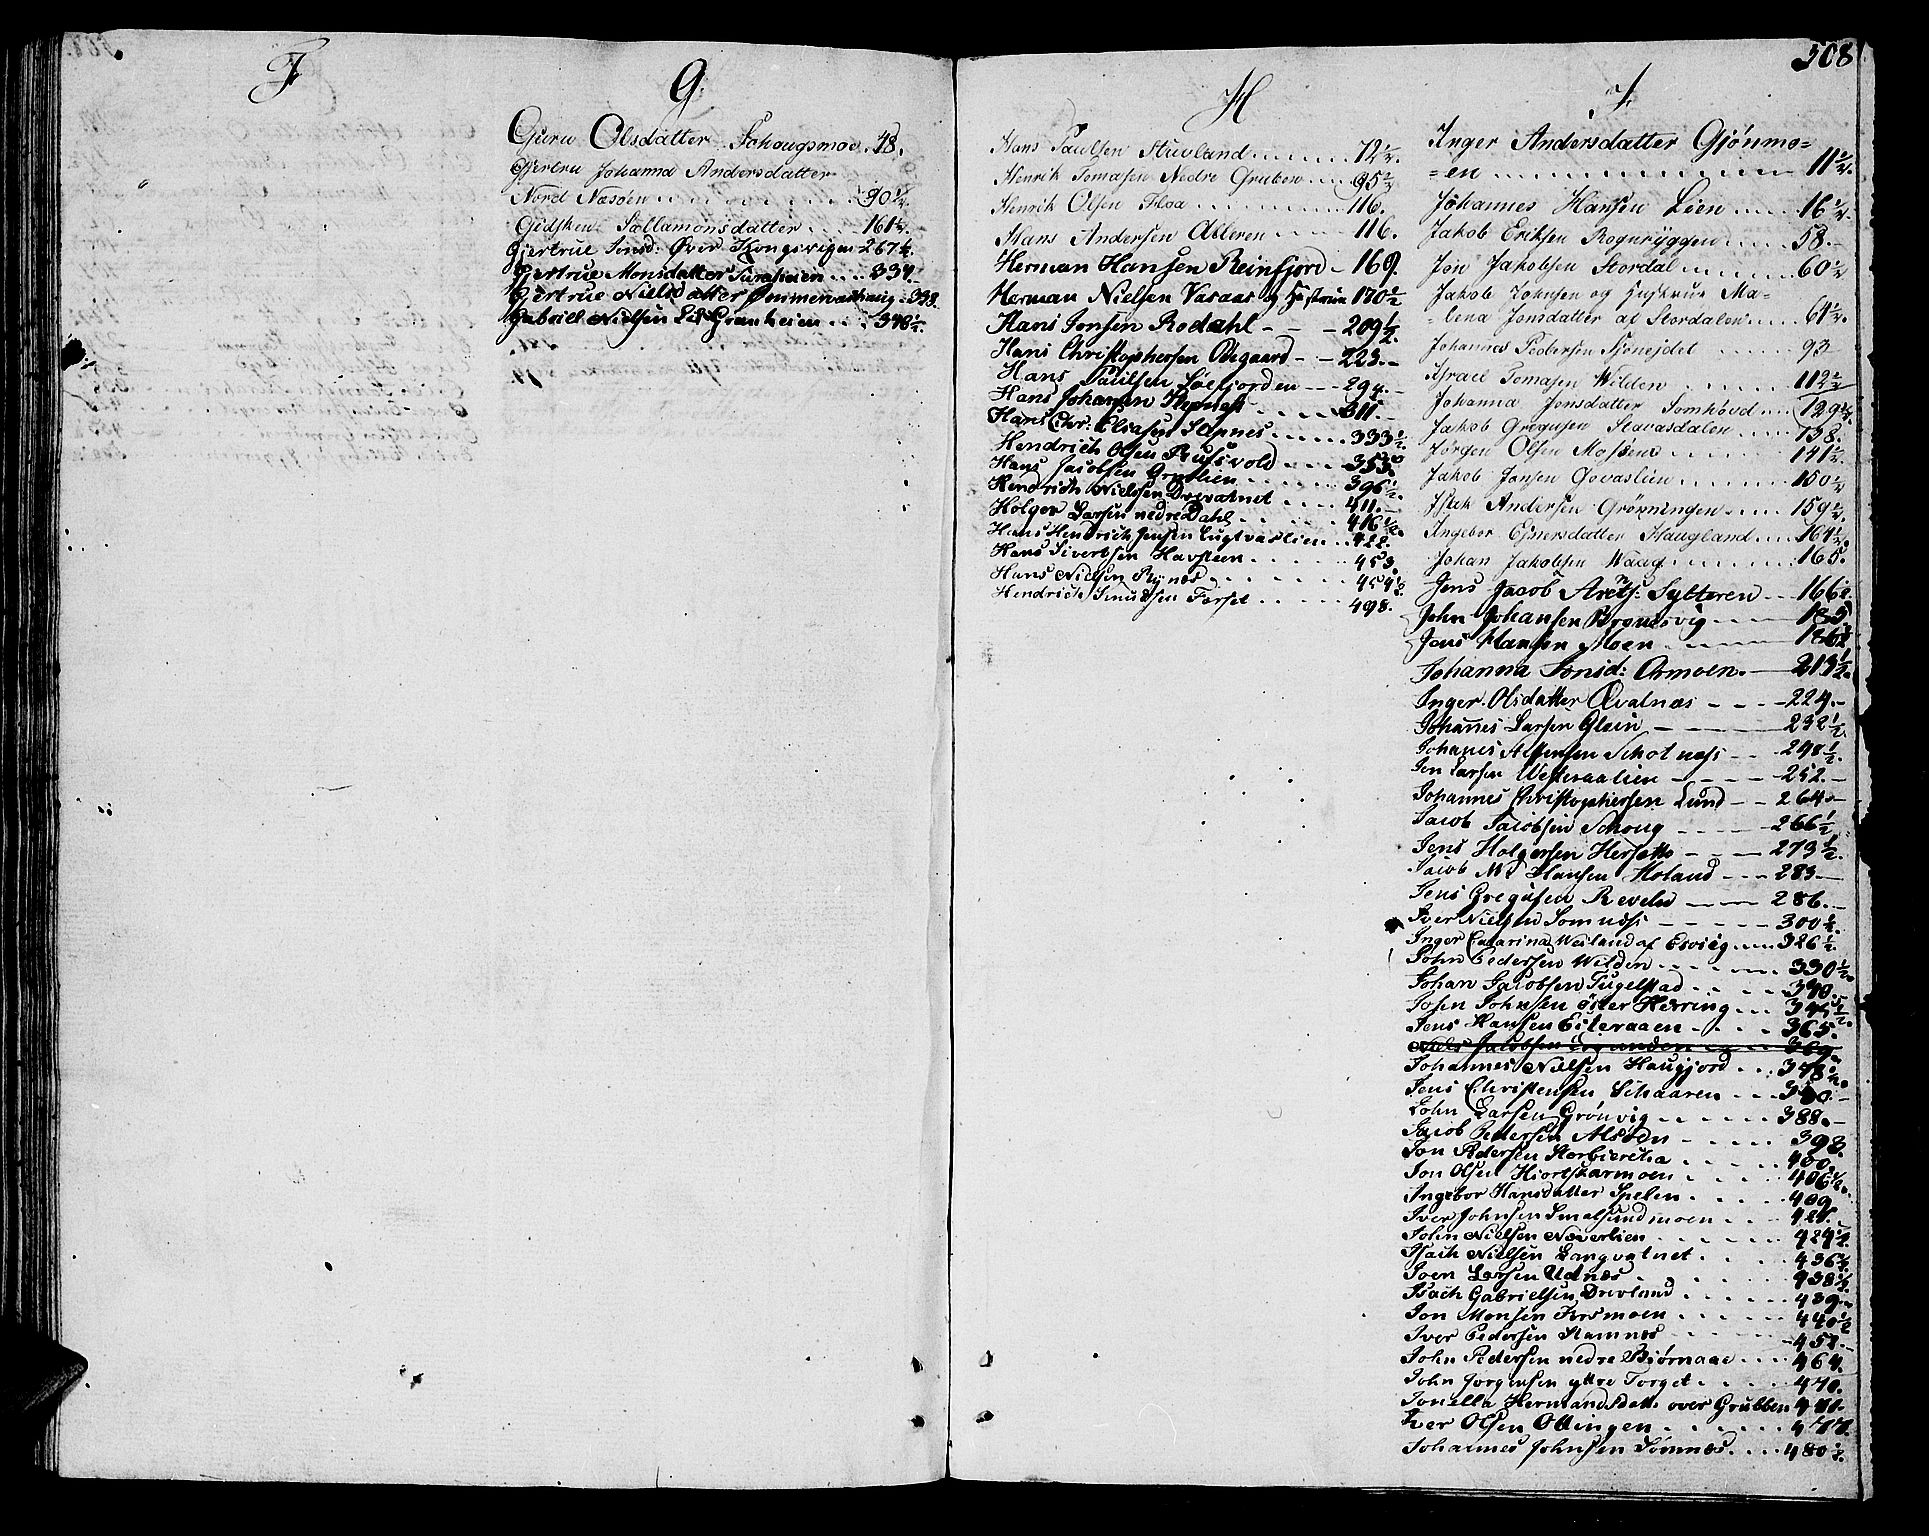 F
G
Guru Olsdatter Schougsmoe. 48.
Gjertru Johanna Andersdatter
Nord Næsøen 90 1/2
Gidsken Sallamonsdatter 161 1/2.
Gjertrue Jonsd: Øver Kongsvigen 267 1/2.
Gjertrue Monsdatter 334.
Gjertrue Nielsdatter 338.
Gabriel Nielsen Granheien 348 1/2.
H
Hans Paulsen Stuvland 72 1/2.
Henrik Tomasen Nedre Gruben 95 1/2
Henrik Olsen Floa 116.
Hans Andersen Alteren 116.
Herman Hansen Reinfjord - 169.
Herman Nielsen Vasaas og Hustrue 170 1/2
Hans Jonsen Rodahl - - - 209 1/2.
Hans Christophersen Ødegaard - - 223. -
Hans Paulsen Søefjorden - - - 294. -
Hans Johansen 311. -
Hans Chr: Eliasen Stopnes 333 1/2.
Hendrich Olsen Russvold 353.
Hans Jacobsen Grytlien 396 1/2.
Hendrich Nielsen Drevatnet 411. -
Holger Larsen nedre Dahl 416 1/2
Hans Hendrich Jensen Lugtvaslien 422.
Hans Sivertsen Havsteen 453.
Hans Nielsen Rynes 454 1/2.
Hendrich Knudsen Forset 498.
508
I
Inger Andersdatter Gjønmo=
=en 11 1/2.
Johannes Hansen Lien 16 1/2.
Jakob Eriksen Rognryggen 58. -
Jon Jakobsen Stordal 60 1/2
Jakob Johnsen og Hustrue Ma=
=lena Jonsdatter af Stordalen 61 1/2.
Johannes Pedersen Sjonejdet 93 -
Israel Tomasen Wilden 112 1/2
Johanna Jonsdatter Somhovd 129 1/2
Jakob Gregusen Stavasdalen 138.
Jørgen Olsen Mossene 141 1/2.
Jakob Jansen Govaslien 150 1/2
Isak Andersen Grønningen 159 1/2.
Ingebor Ejnersdatter Haugland 164 1/2.
Johan Jakobsen Waag. 165.
Jens Jacob Arets: Sytteren - - 166 1/2.
John Johansen Brønsvig 185
Jens Hansen Moen 186 1/2
Johanna Jonsd: Ormoen. 213 1/2.
Inger Olsdatter Qvalnæs - - - 224. -
Johanes Larsen Glein 232 1/2
Johanes Nilsen Schotness - - 240 1/2.
Jon Larsen Westeraalien - - - - 252. -
Johannes Christophersen Lund - - 264. -
Jacob Jacobsen Schoug - - - - 266 1/2
Jens Holgersen Hersette - - - 273 1/2.
Jacob Ms Hansen Holand - - - 283 -
Jens Gregusen Revelen 286. -
Iver Nielsen Somness - - - - - 300 1/2.
Inger Catarina Weiland af Esvig 326 1/2
John Pedersen Wilden 330 1/2.
Johan Jacobsen Tugelstad 340.
John Johnsen øster Herring 345 1/2.
Jens Hansen Esteraaen 365.
Niels Jacobsen 369.
Johannes Nielsen Haugjord 348 1/2.
Jens Christensen Schaaren 380. -
John Larsen Grønvig 388. -
Jacob Pedersen Alsøen - 398.
Jon Pedersen Storbiercka 400.
Jon Olsen Hiortskarmoen 406 1/2.
Ingebor Hansdatter Spelen 409.
Iver Johnsen Smalsundmoen 421.
John Nielsen Næverlien 424 1/2.
Isach Nielsen Langvatnet 436 1/2.
Joen Larsen Udnæs 438 1/2
Isach Gabrielsen Drevland 439.
Jon Monsen Forsmoen 440 1/2
Iver Pedersen Hamnes 452.
John Pedersen nedre Biørnaae 464.
John Jørgensen ytre Torget 470.
Jonella Hermandsdatt: over Grubben 471.
Iver Olsen Ottingen 477.
Johannes Johnsen Sømnæs 480 1/2.